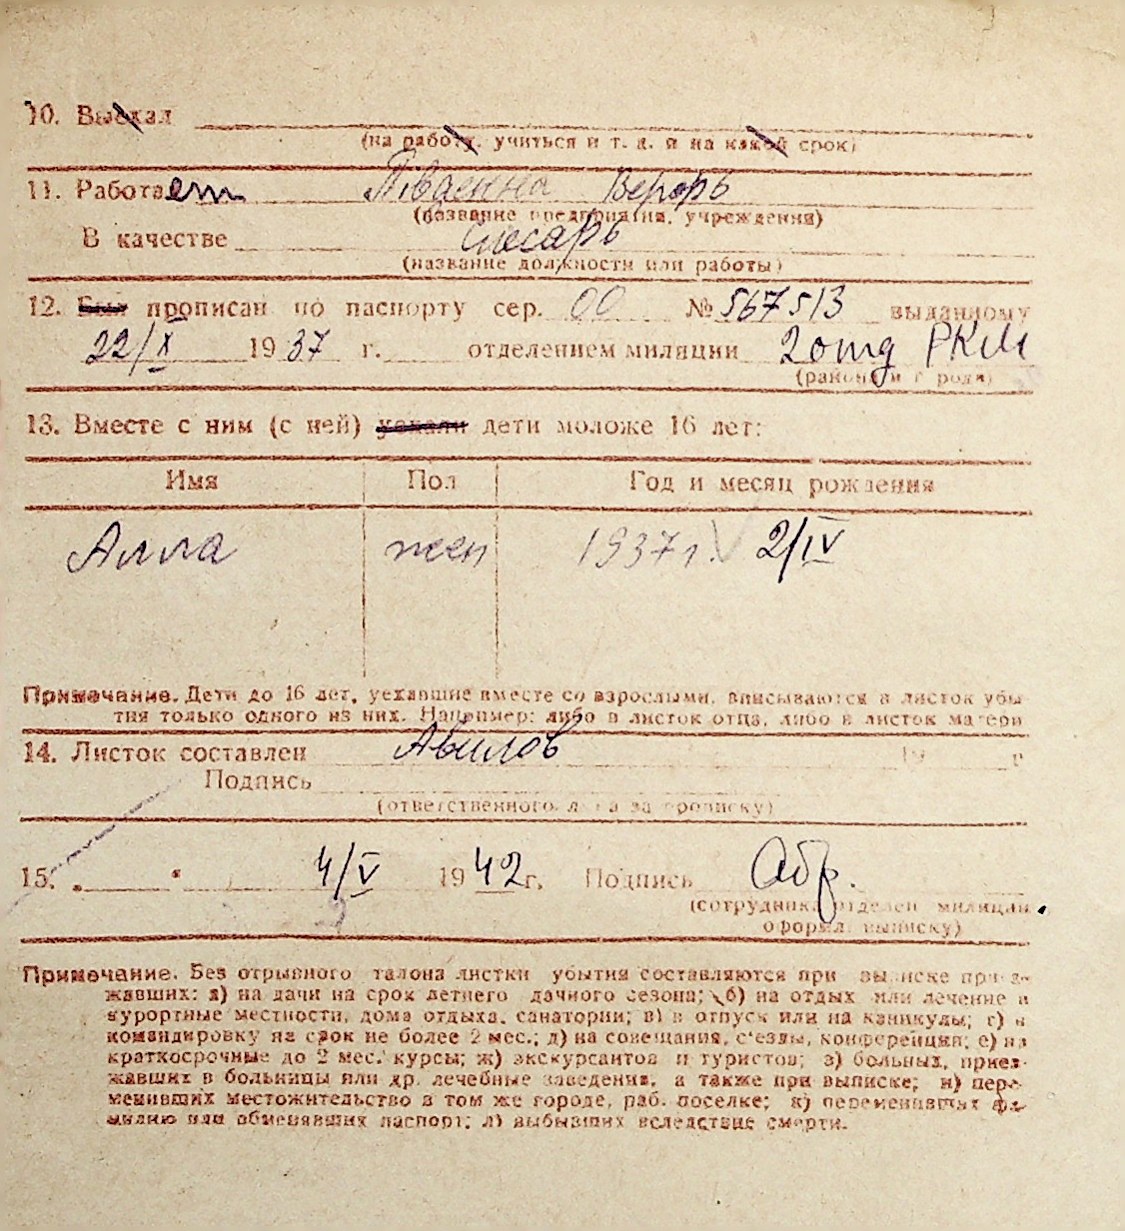 10. Выехал
(на работу, учиться и т. д. и на какой срок)
11. Работает
(название предприятия, учреждения)
В качестве Слесарь
(название должности или работы)
12. Был прописан по паспорту сер. 00 № 567513 выданному
22/X 1937 г. отделением милиции 2 отд РКМ
(района и города)
13. Вместе с ним (с ней) уехали дети моложе 16 лет:
Имя Пол Год и месяц рождения
Алла жен 1937 г. 2/IV
Примечание. Дети до 16 лет, уехавшие вместе со взрослыми, вписываются в листок убы-
тия только одного из них. Например: либо в листок отца, либо в листок матери
14. Листок составлен Авилов 19 г
Подпись
(ответственного лица за прописку)
15. „ “ 4/V 1942 г. Подпись Абр.
(сотрудника отделен милиции
оформл. выписку)
Примечание. Без отрывного талона листки убытия составляются при выписке приез-
жавших: а) на дачи на срок летнего дачного сезона; б) на отдых или лечение в
курортные местности, дома отдыха, санатории; в) в отпуск или на каникулы; г) в
командировку на срок не более 2 мес.; д) на совещания, с'езды, конференции; е) на
краткосрочные до 2 мес. курсы; ж) экскурсантов и туристов; з) больных, приез-
жавших в больницы или др. лечебные заведения, а также при выписке; и) пере-
менивших местожительство в том же городе, раб. поселке; к) переменивших фа-
милию или обменявших паспорт; л) выбывших вследствие смерти.